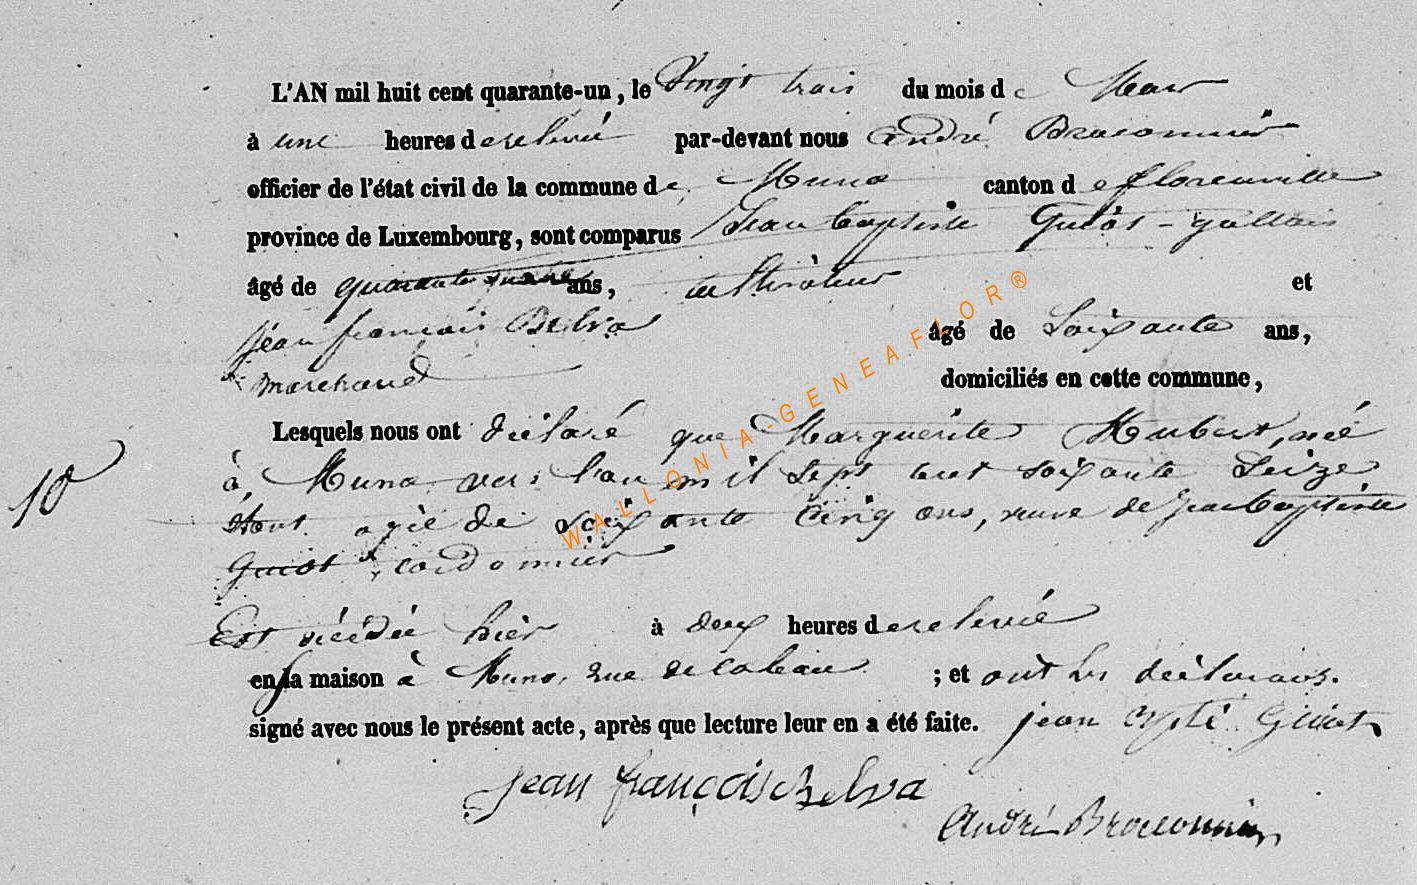 L'AN mil huit cent quarante-un, le vingt trois du mois de Mars
à une heures de relevée par-devant nous André Braconnier
officier de l'état civil de la commune de Muno canton de florenville
province de Luxembourg, sont comparus Jean baptiste Guiot-gallais
âgé de quarante ans, cultivateur et
jean françois Belva âgé de Soixante ans,
marchand domiciliés en cette commune,
Lesquels nous ont déclaré que Marguerite Hubert, née
à Muno vers l'an mil sept cent soixante Seize
étant agée de soixante cinq ans, veuve de jean baptiste
Guiot, cordonnier
Est décédée hier à deux heures de relevée
en sa maison à Muno, rue ; et ont les déclarans.
signé avec nous le présent acte, après que lecture leur en a été faite. jean Guiot
10
jean françois Belva
André Braconnier
WALLONIA-GENEAFLOR®